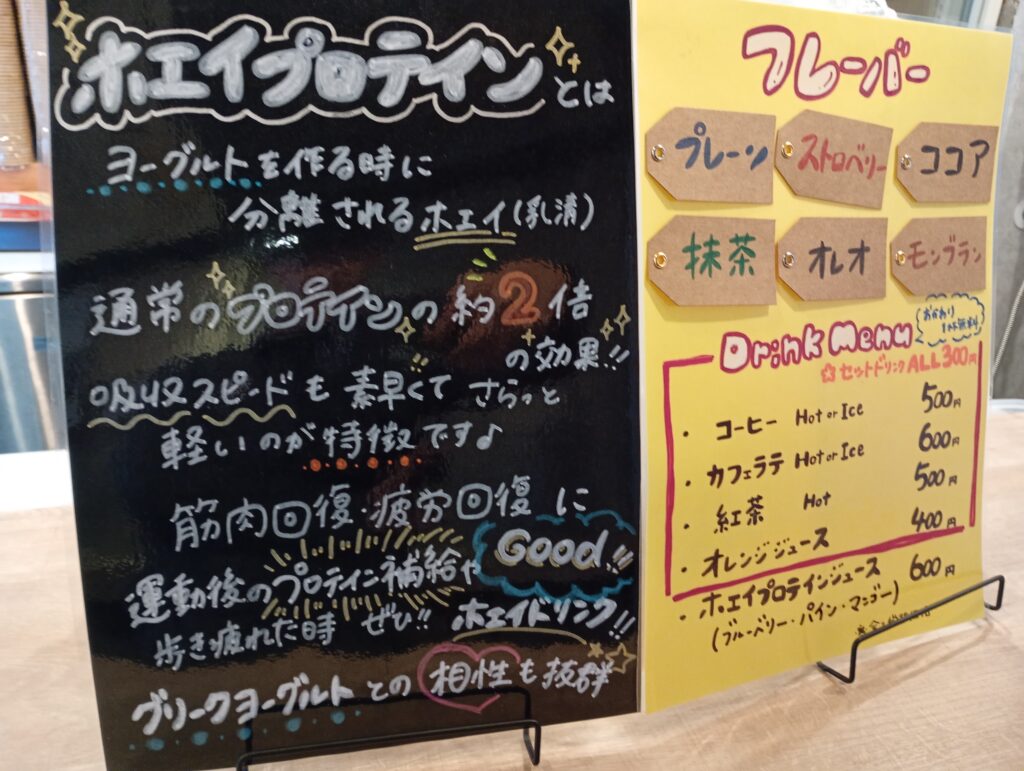 ホエイプロテインとは
ヨーグルトを作る時に
分離されるホエイ(乳清)
通常のプロテインの約2倍
の効果!!
吸収スピードも素早くてさらっと
軽いのが特徴です♪
筋肉回復・疲労回復に
Good!!
運動後のプロテイン補給や
歩き疲れた時 ぜひ!! ホエイドリンク!!
グリークヨーグルトとの相性も抜群
フレーバー
プレーン
ストロベリー
ココア
抹茶
オレオ
モンブラン
Drink Menu
おかわり
1杯無料
☆セットドリンクALL300円
・コーヒー Hot or Ice 500円
・カフェラテ Hot or Ice 600円
・紅茶 Hot 500円
・オレンジジュース 400円
・ホエイプロテインジュース 600円
(ブルーベリー・パイン・マンゴー)